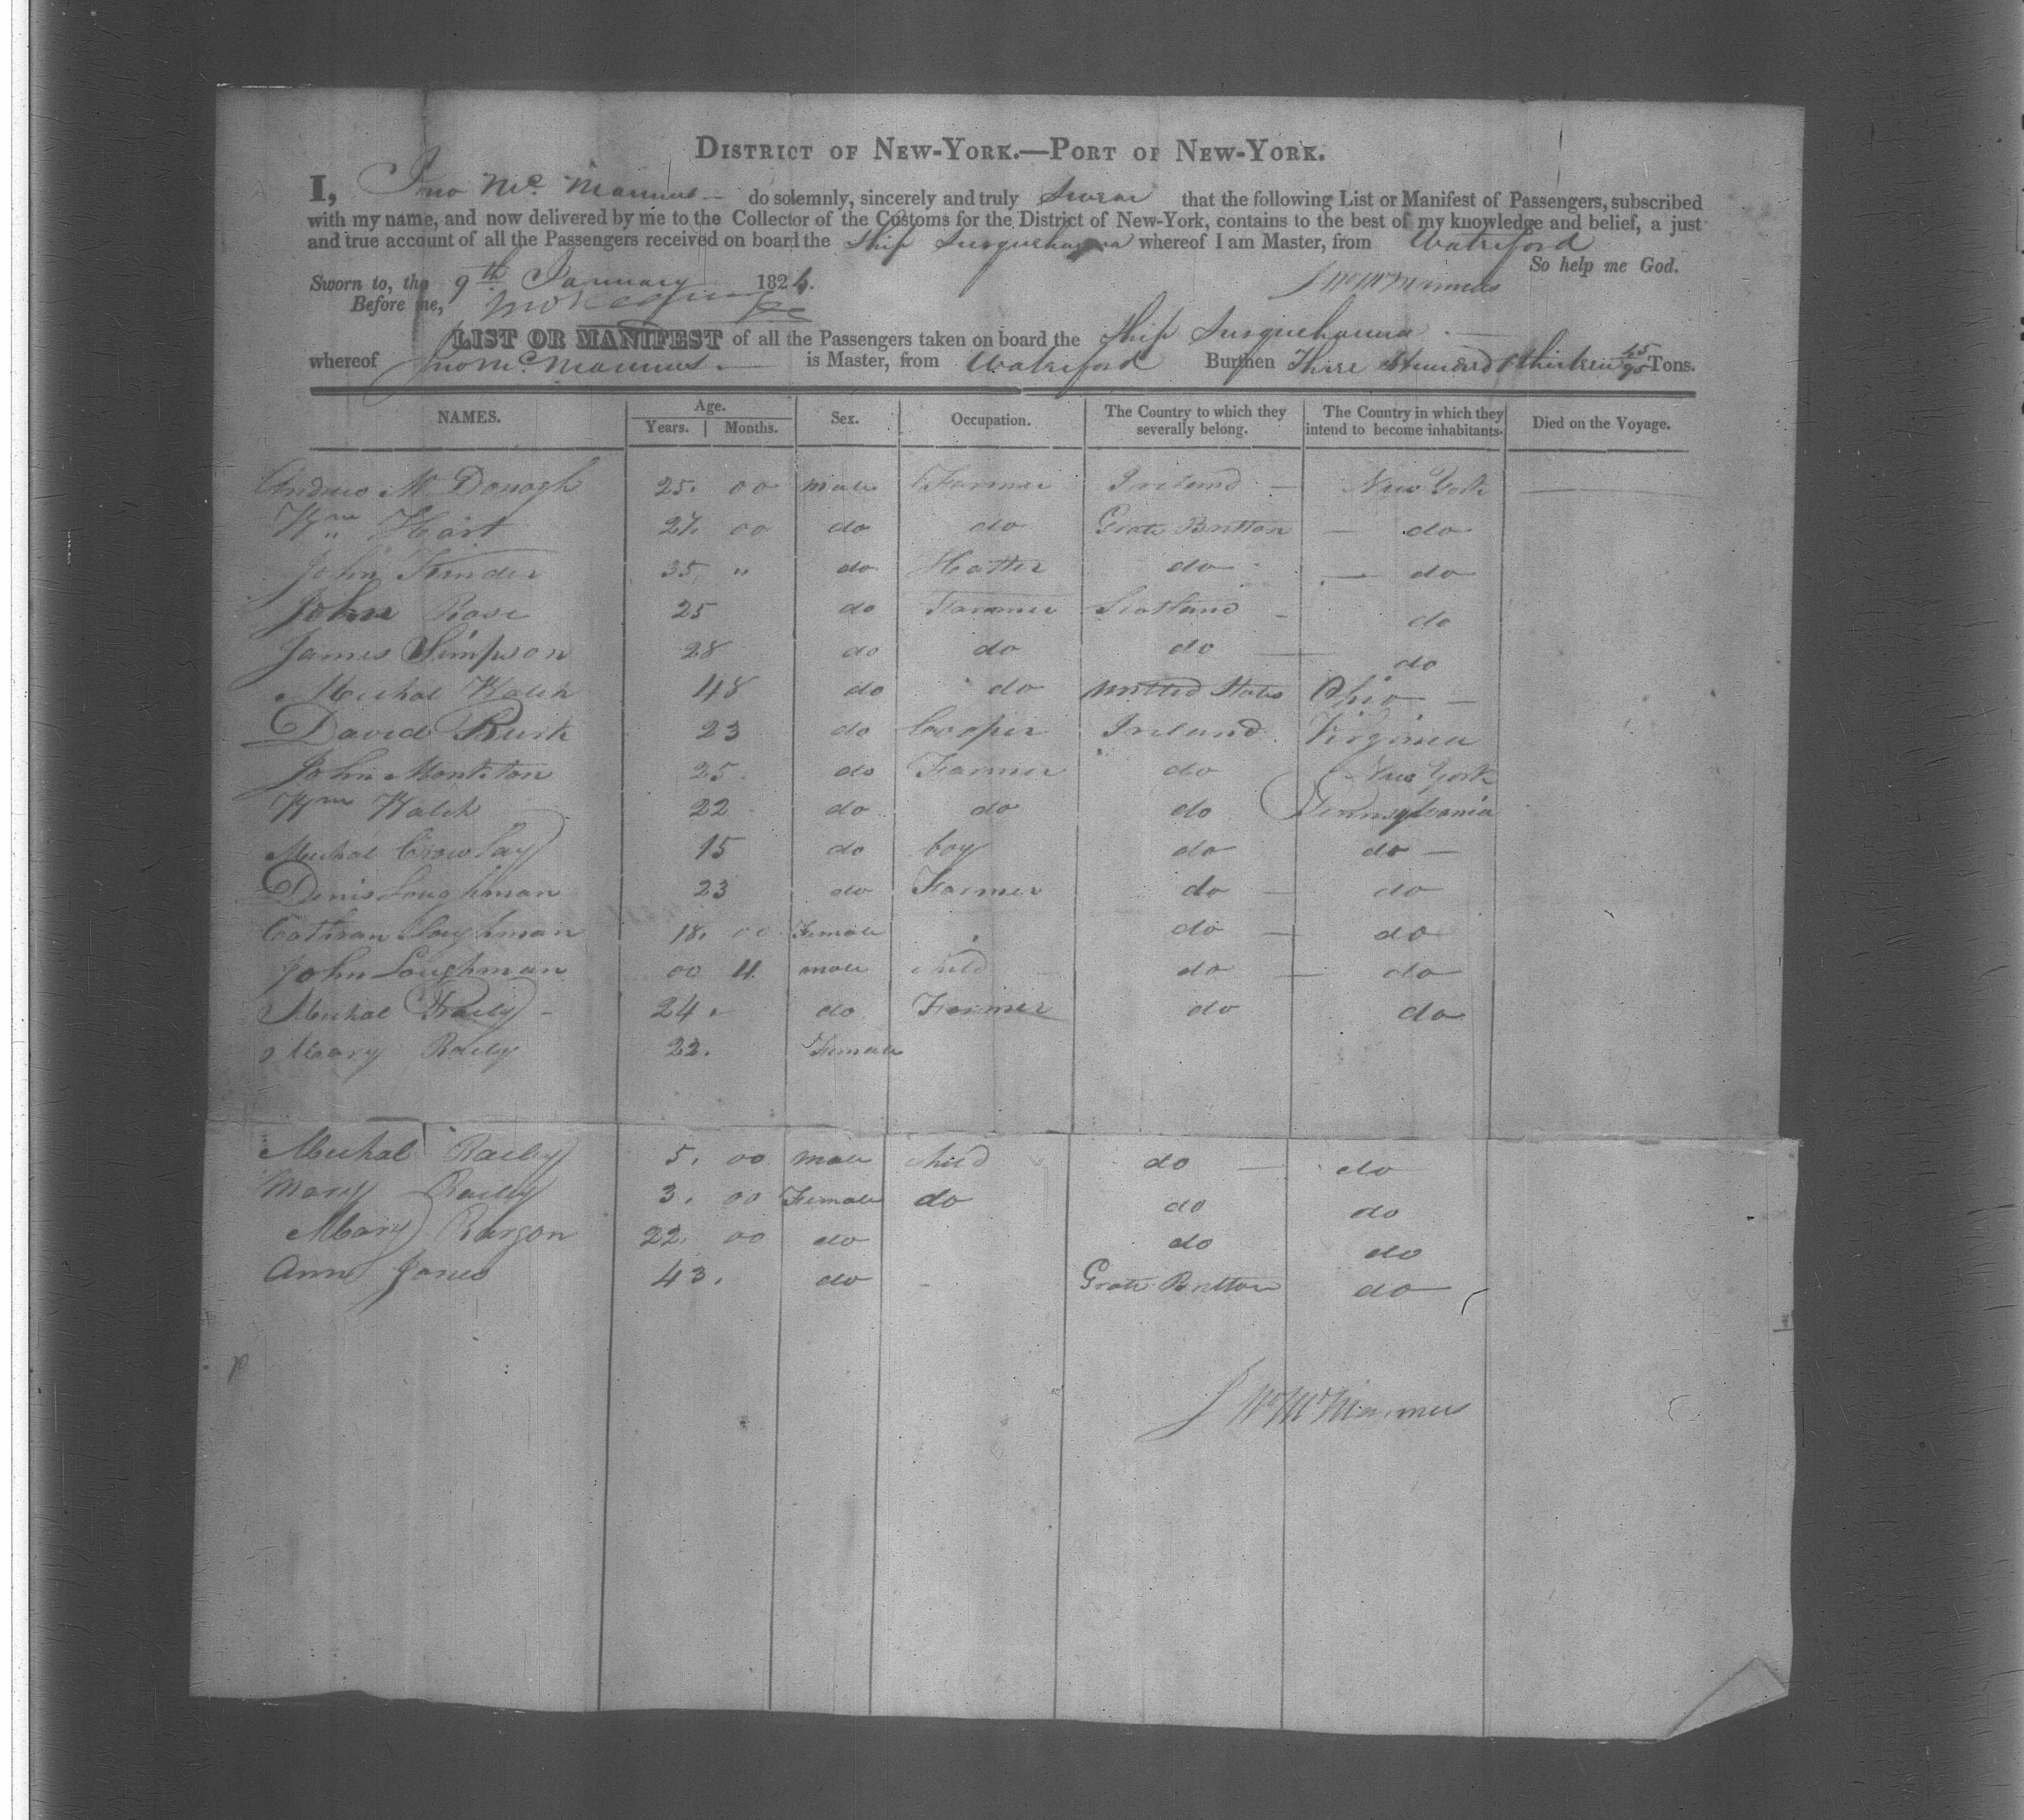 DISTRICT OF NEW-YORK.—PORT OF NEW-YORK.
I, Jno Mc. Manus — do solemnly, sincerely and truly Swear that the following List or Manifest of Passengers, subscribed
with my name, and now delivered by me to the Collector of the Customs for the District of New-York, contains to the best of my knowledge and belief, a just
and true account of all the Passengers received on board the Ship Susquehanna whereof I am Master, from Waterford
So help me God.
Sworn to, the 9th January 182
Before me,
LIST OR MANIFEST of all the Passengers taken on board the Ship Susquehanna
whereof Jno Mc. Manus is Master, from Waterford Burthen Three Hundred & thirteen 45/95 Tons.
NAMES. Age. Years. Months. Sex. Occupation. The Country to which they severally belong. The Country in which they intend to become inhabitants. Died on the Voyage.
Andrew Mc Donogh 25. 00 male Farmer Ireland — New York —
Wm Hart 27. 00 do do Grate Britton — do
John 35, " do Hatter do — do
John Rose 25 do Farmer Scotland - do
James Simpson 28 do do do — do
Michal Walsh 48 do do United States Ohio —
David Rusk 23 do Cooper Ireland Virginia
John Montiton 25. do Farmer do New York
Wm Walsh 22 do do do Pennsylvania
Michal Crowlay 15 do boy do do —
Denis Loughman 23 do Farmer do — do
Cathran Loughman 18. 00 Female do — do
John Loughman 00 4 male child do — do
Michal Raily - 24. do Farmer do do
Mary Raily 22. Female
Michal Raily 5. 00 male child do — do
Mary Raily 3. 00 Female do do do
Mary 22. 00 do do do
Ann Jones 43. do - Grate Britton do